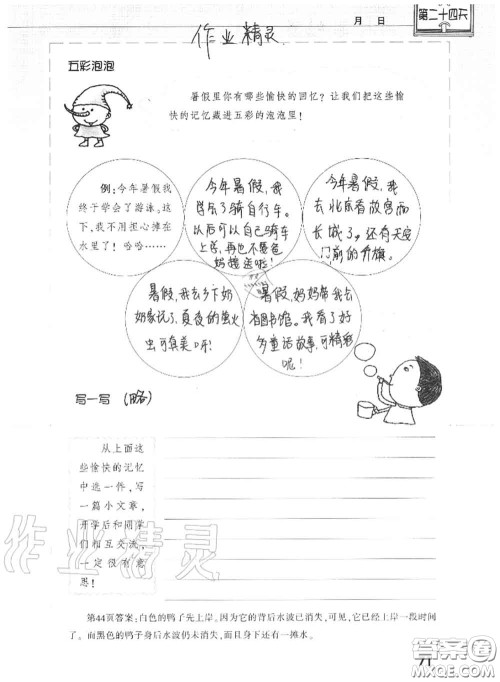 月 日
第二十四天
作业精灵
五彩泡泡
暑假里你有哪些愉快的回忆？让我们把这些愉
快的记忆藏进五彩的泡泡里！
例：今年暑假我
终于学会了游泳。这
下，我不用担心掉在
水里了！哈哈……
今年暑假，我
学会了骑自行车。
以后可以自己骑车
上学，再也不要爸
妈接送啦！
今年暑假，我
去北京看故宫和
长城了，还有天安
门前的升旗。
暑假，我去乡下奶
奶家玩了，夏夜的萤火
虫可真美呀！
暑假，妈妈带我去
图书馆。我看了好
多童话故事，可精彩
呢！
写一写 （略）
从上面这
些愉快的记忆
中选一件，写
一篇小文章，
开学后和同学
们相互交流，
一定很有意
思！
作业精灵
第44页答案：白色的鸭子先上岸。因为它的背后水波已消失，可见，它已经上岸一段时间
了。而黑色的鸭子身后水波仍未消失，而且身下还有一摊水。
71
答案圈
MXQE.COM